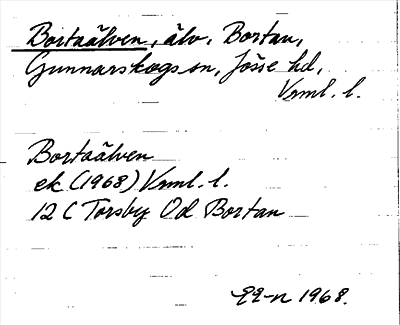 Bortaälven, älv, Bortan,
Gunnarskogs sn, Jösse hd,
Vrml. l.
Bortaälven
ek (1968) Vrml. l.
12 C Torsby Od Bortan
1968.